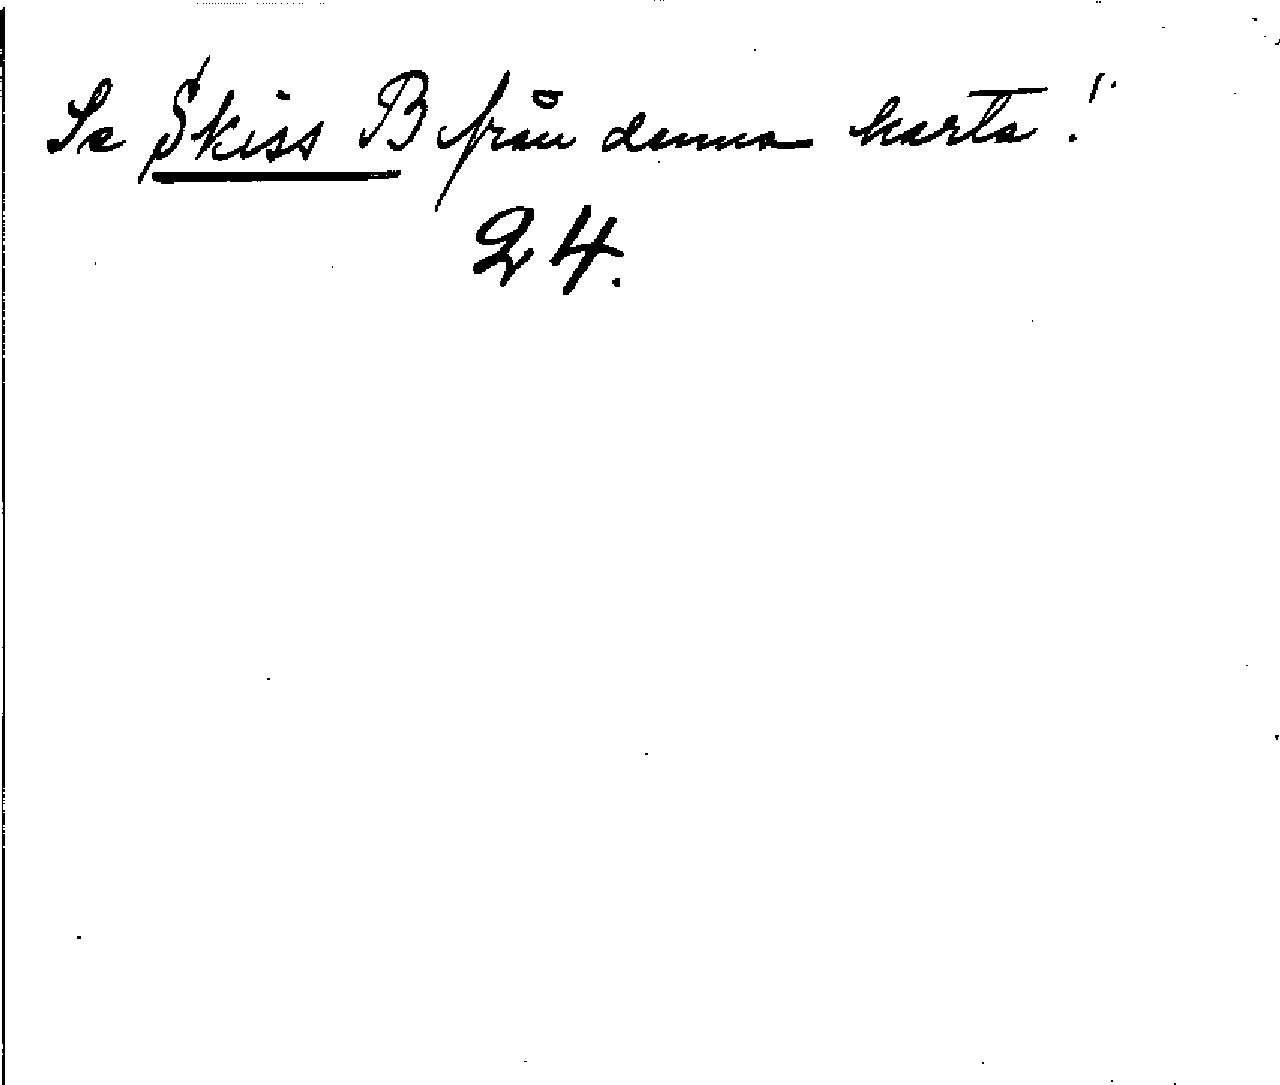 Se Skiss B från denna karta!
24.